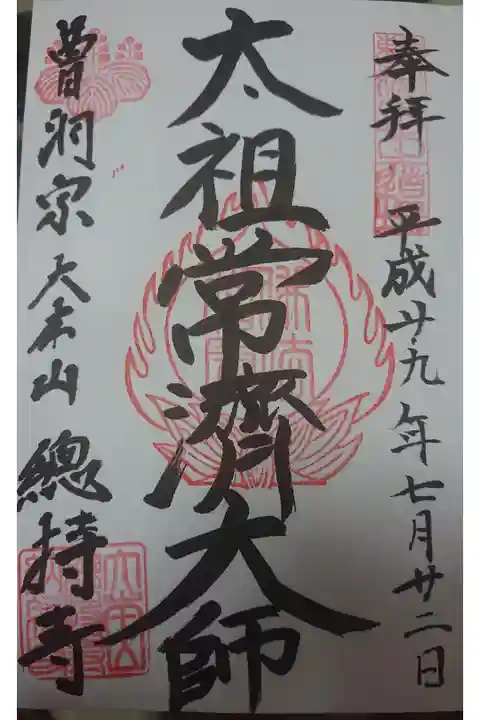 奉拝 平成廿九年七月廿二日
太祖常濟大師
曹洞宗大本山 總持寺